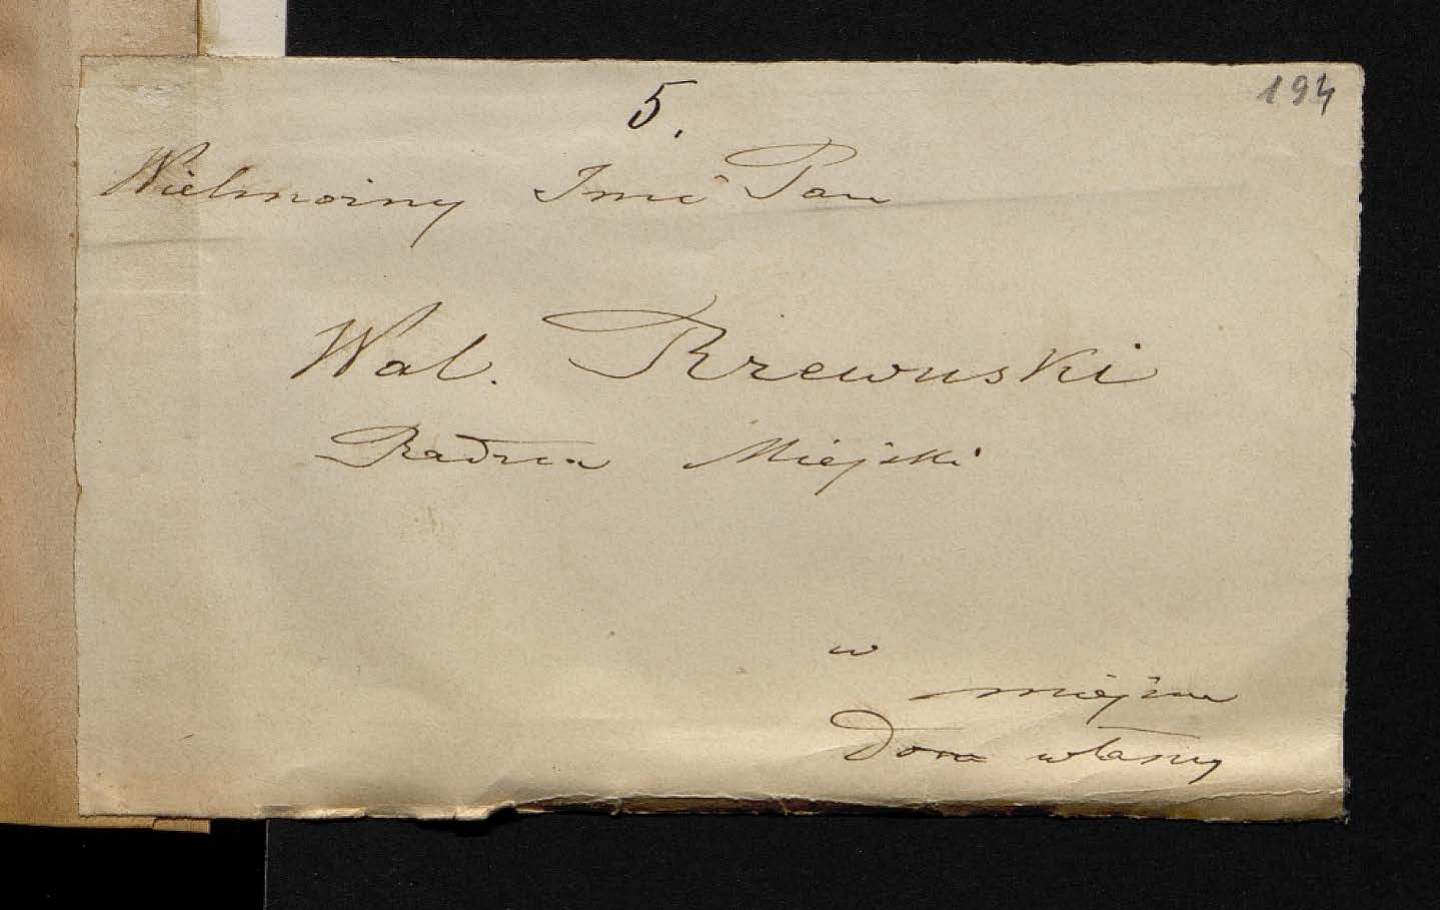 194
5.
Wielmożny Jmć Pan
Wal. Rzewuski
Radzca Miejski
w
miejscu
Dom własny